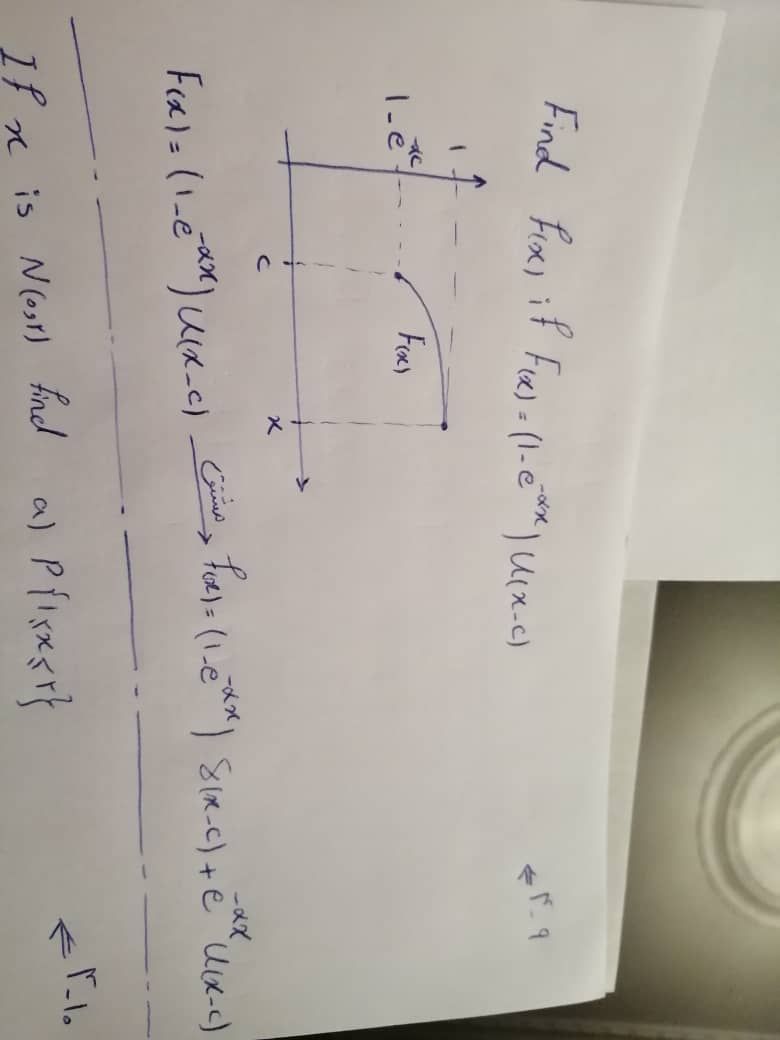 Find f(x) if F(x) = (1-e^-αx) U(x-c) ⇐ ۴-۹
1
1-e^-αc
F(x)
c x
F(x) = (1-e^-αx) U(x-c) → f(x) = (1-e^-αx) δ(x-c) + e^-αx U(x-c)
If x is N(0,۲) find a) P{1≤x≤۲} ⇐ ۴-۱۰